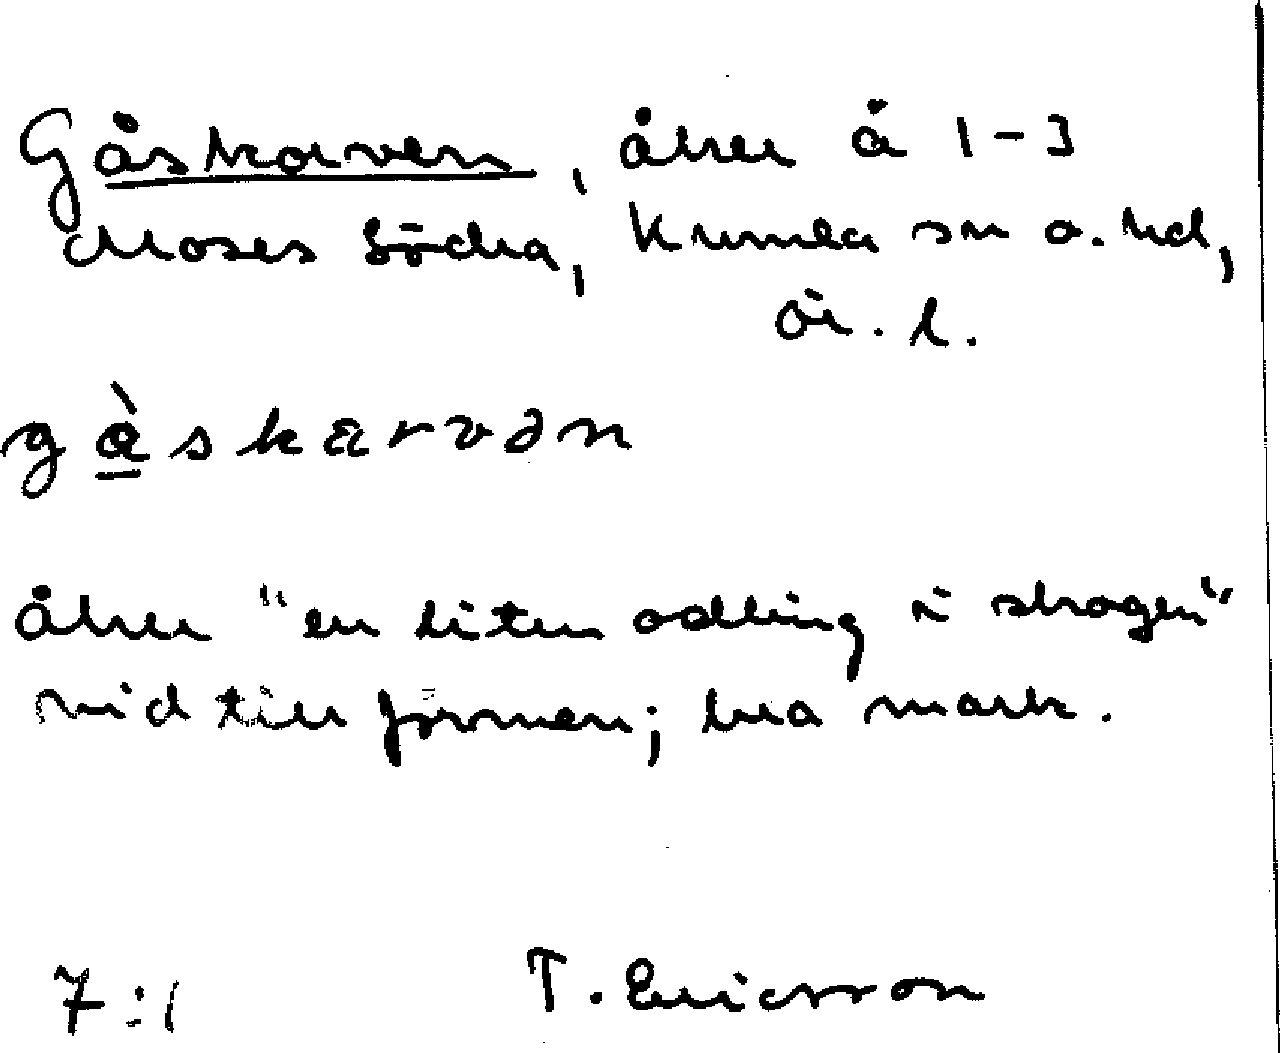 Gåskarven, åker å 1-3
Moses Södra, Kumla sn o. hd,
Ör. l.
gàskarvən
Åker "en liten odling i skogen"
vid till formen; bra mark.
7:1 T. Ericsson